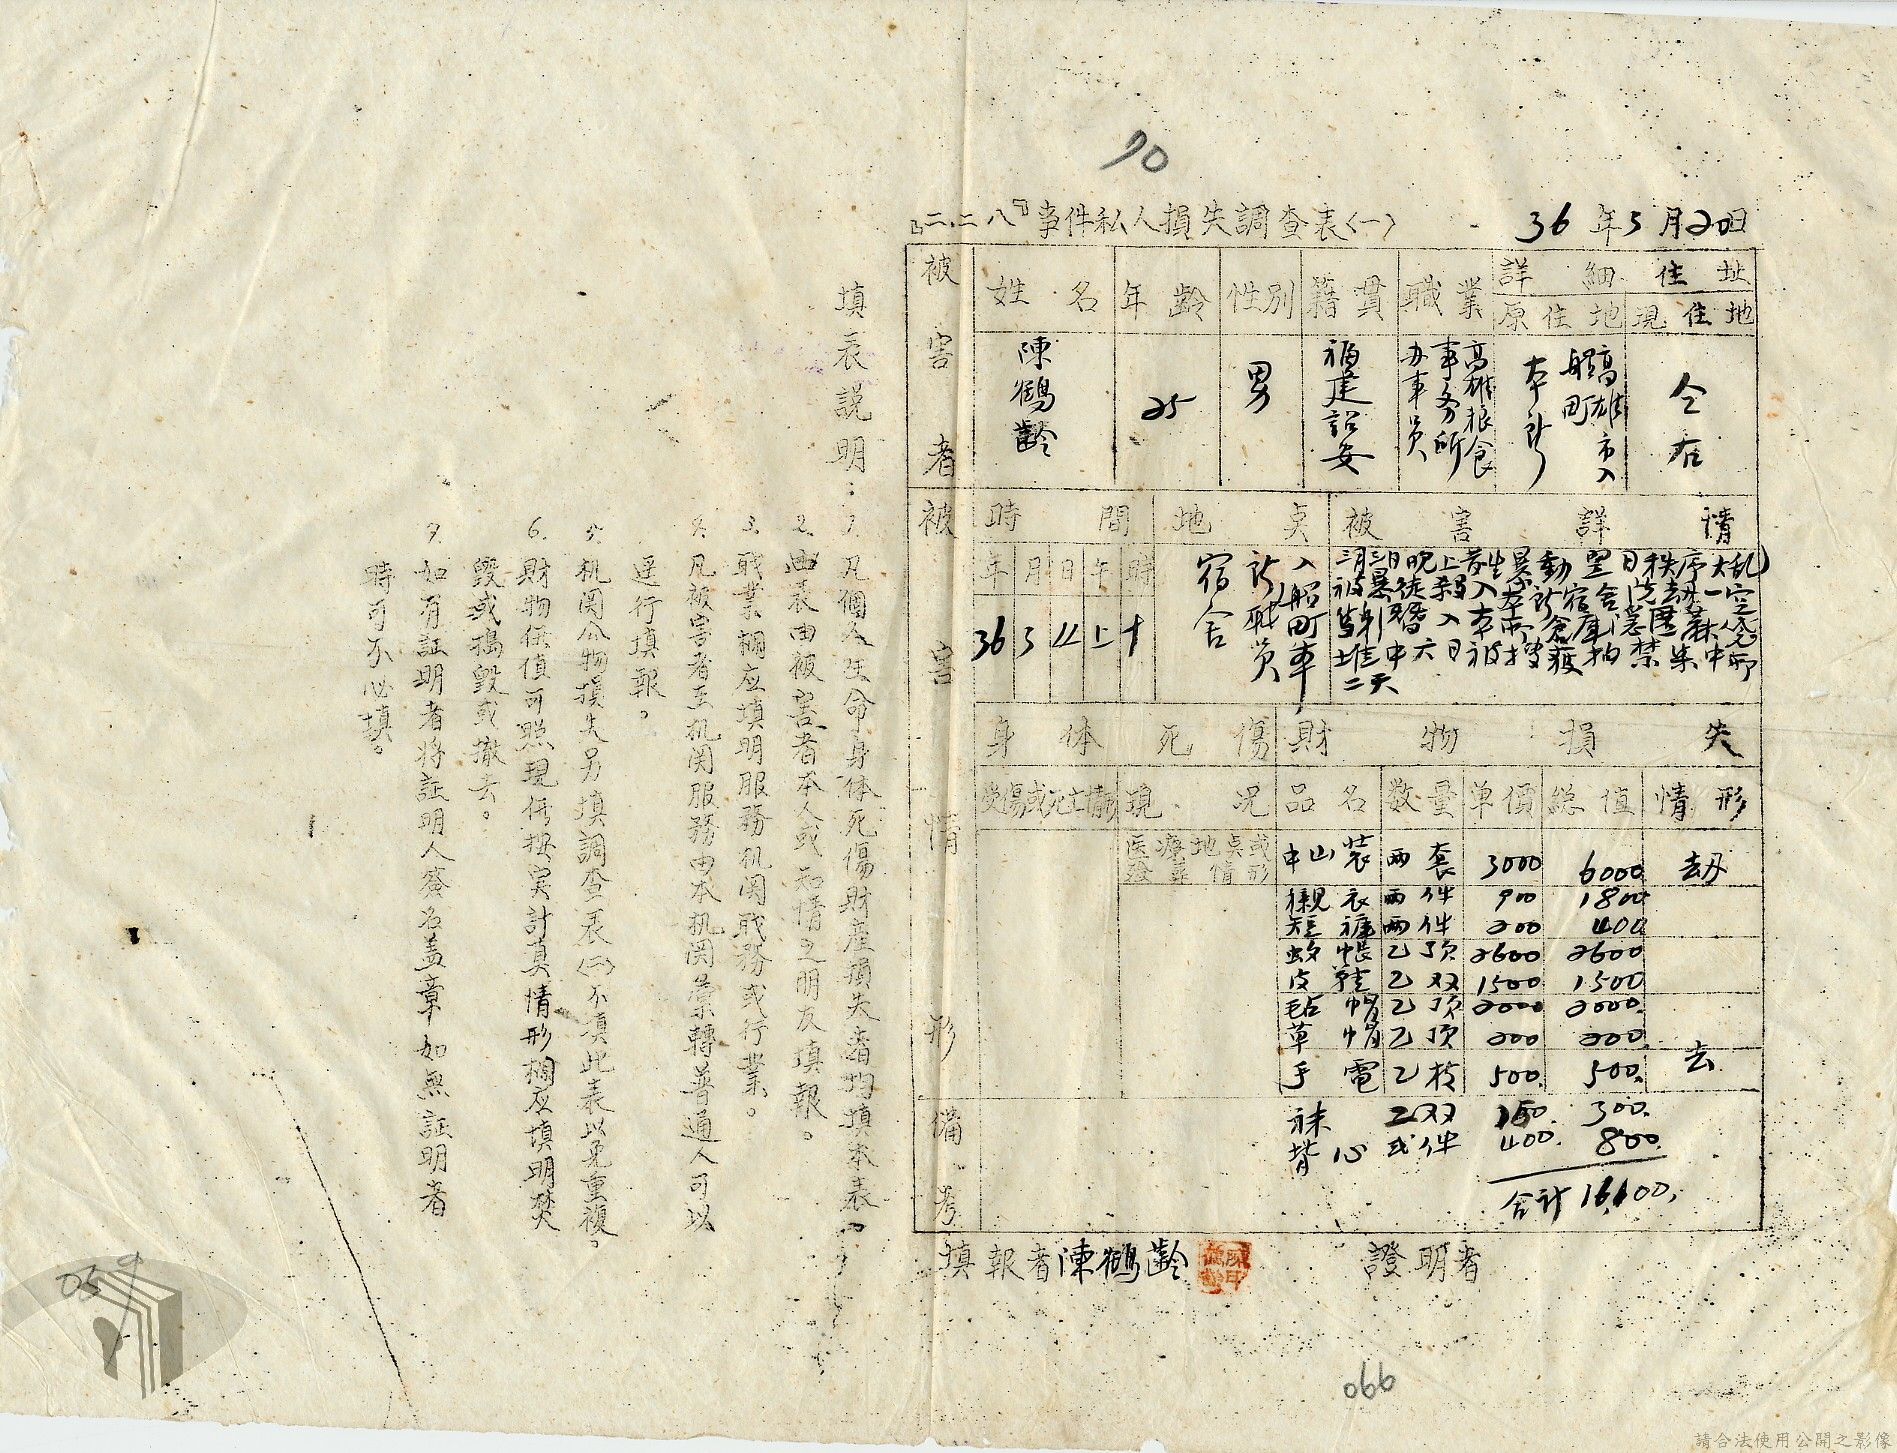 70
『二.二八』事件私人損失調查表〈一〉
36年5月20日
被害者
姓名
年齡
性別
籍貫
職業
詳細住址
原住地
現住地
陳鶴齡
25
男
福建詔安
高雄粮食
事务所
办事员
高雄市入
船町
本所
仝右
被害情形
時間
地點
被害詳情
年
月
日
午
時
36
3
4
上
十
入船町本
所职员
宿舍
三月三日晚上發生暴動翌日秩序大乱
被暴徒殺入本所宿舍洗劫一空
隻身引避入本市倉庫
堆中六日被搜獲拍禁集中所
二天
身体死傷
財物損失
受傷或死亡情形
現況
品名
数量
單價
総值
情形
医療地点或
殮葬情形
中山装 两套 3000 6000. 去刼
襯衣 两件 900 1800
短褲 两件 200 400
蚊帳 乙顶 2600 2600
皮鞋 乙双 1500 1500
毡帽 乙顶 2000 2000.
草帽 乙顶 200 200
手電 乙枝 500. 500. 去
袜 乙双 150. 300.
背心 弍件 400. 800.
合计 16,100.
備考
填報者陳鶴齡
證明者
填表説明：1凡個人生命身体死傷財産損失者均填本表〈一〉
2.此表由被害者本人或知情之朋友填報。
3.职業欄应填明服務机関职務或行業。
4.凡被害者至机関服務由本机関彙轉普通人可以
逕行填報。
5.机関公物損失另填調查表〈二〉不填此表以免重複。
6.財物価值可照現価按实計算情形欄应填明焚
毀或搗毀或撤去。
7.如有証明者将証明人簽名盖章如無証明者
時可不必填。
059
066
請合法使用公開之影像